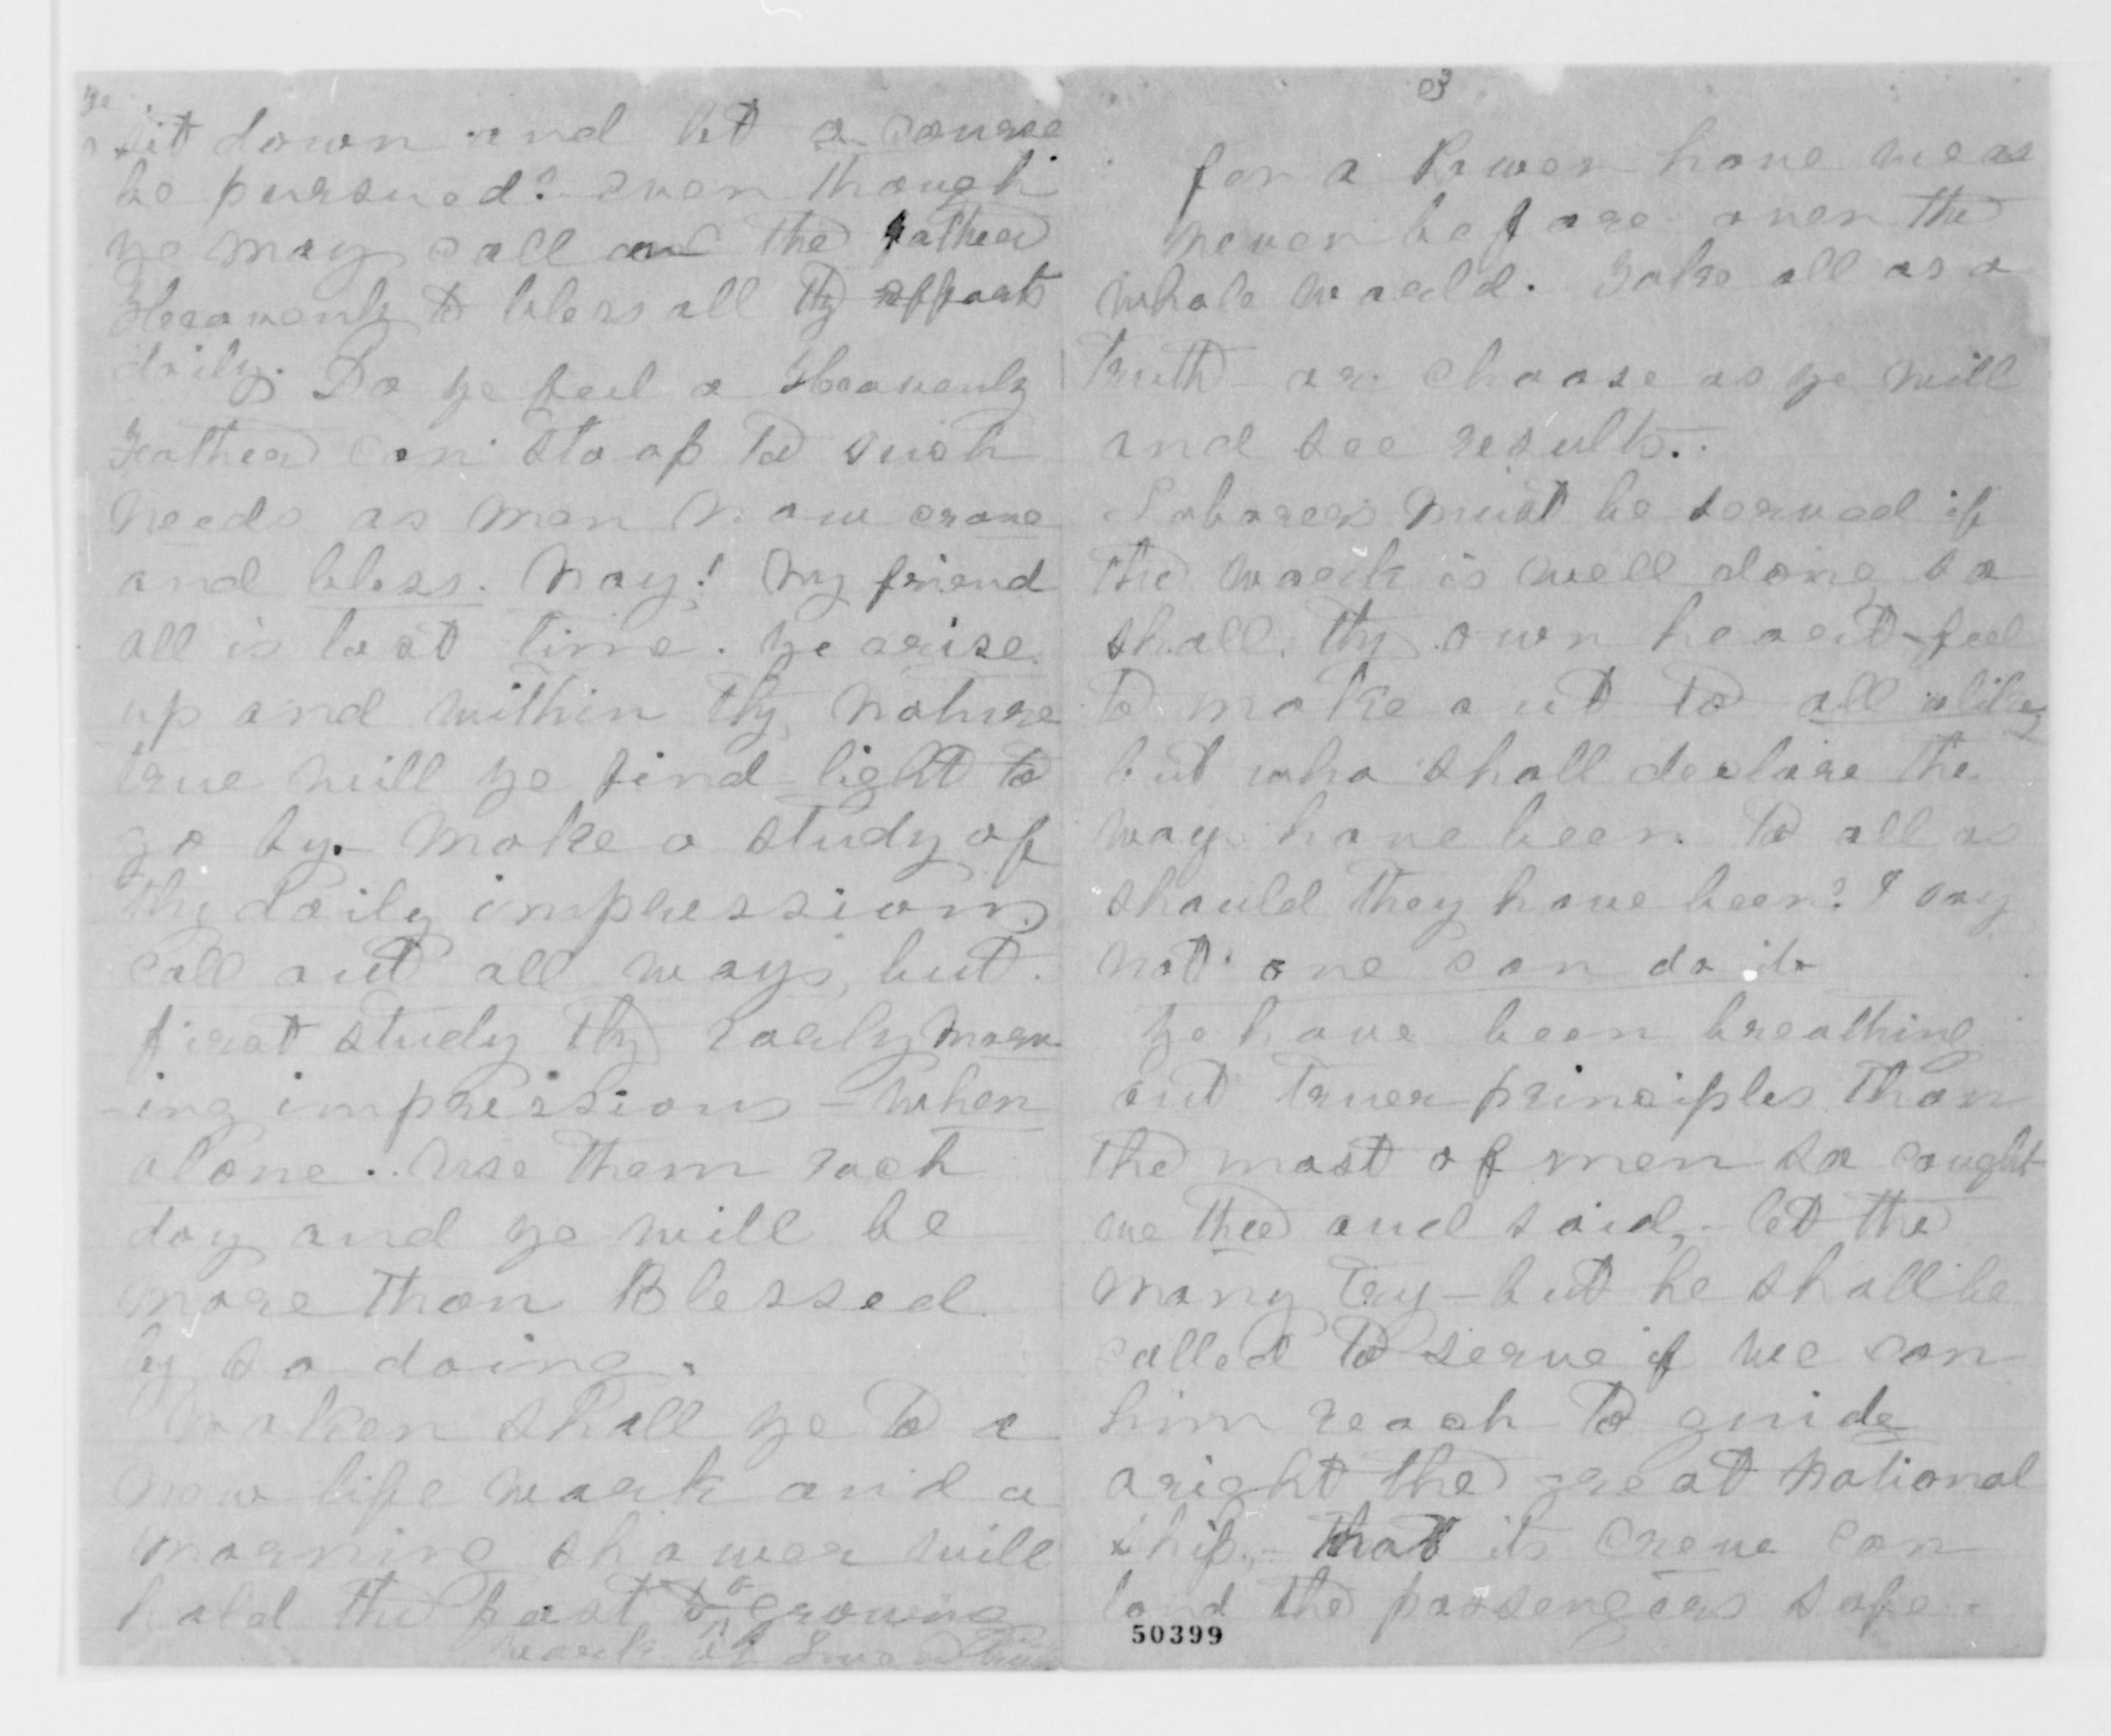 ye
sit down and let a course
be pursued? even though
ye may call on the Father
Heavenly to bless all thy efforts
daily.
Do ye feel a Heavenly
Father can stoop to such
needs as men now crave
and bless. Nay! My friend
all is lost time. Ye arise
up and within thy nature
true will ye find light to
go by. Make a study of
thy daily impressions
call out all ways, but
first study thy early morn
-ing impressions - when
alone. Use them each
day and ye will be
more than Blessed
by so doing.
Waken shall ye to a
new life work and a
morning shower will
hold thee fast to a growing
work of
3
for a Power have we as
never before over the
whole world. Take all as a
truth or choose as ye will
and see results.
Laborers must be served if
the work is well done so
shall thy own heart feel
to make out to all alike
but who shall declare the
ways have been to all as
should they have been? I say
not one can do it
Ye have been breathing
out truer principles than
the most of men so caught
we thee and said, - let the
many try - but he shall be
called to serve if we can
him reach to guide
aright the great National
ship, - that its Crew can
land the passengers safe.
50399